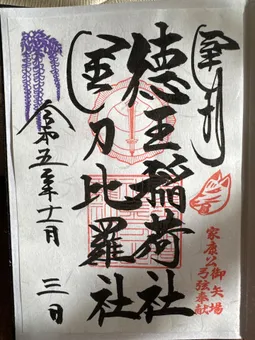 奉拝
徳王稲荷社
金刀比羅社
令和五年十一月 三日
家康公御矢場
弓弦奉献